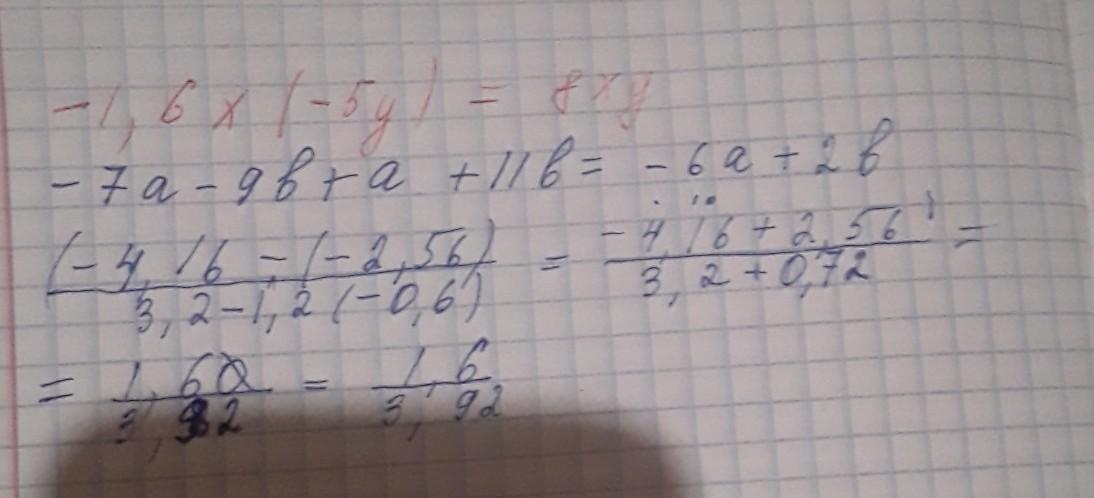 -1,6x(-5y) = 8xy
-7a-9b+a +11b= -6a+2b
(-4,16-(-2,56) / 3,2-1,2(-0,6) = -4,16+2,56 / 3,2+0,72 =
= 1,60 / 3,92 = 1,6 / 3,92